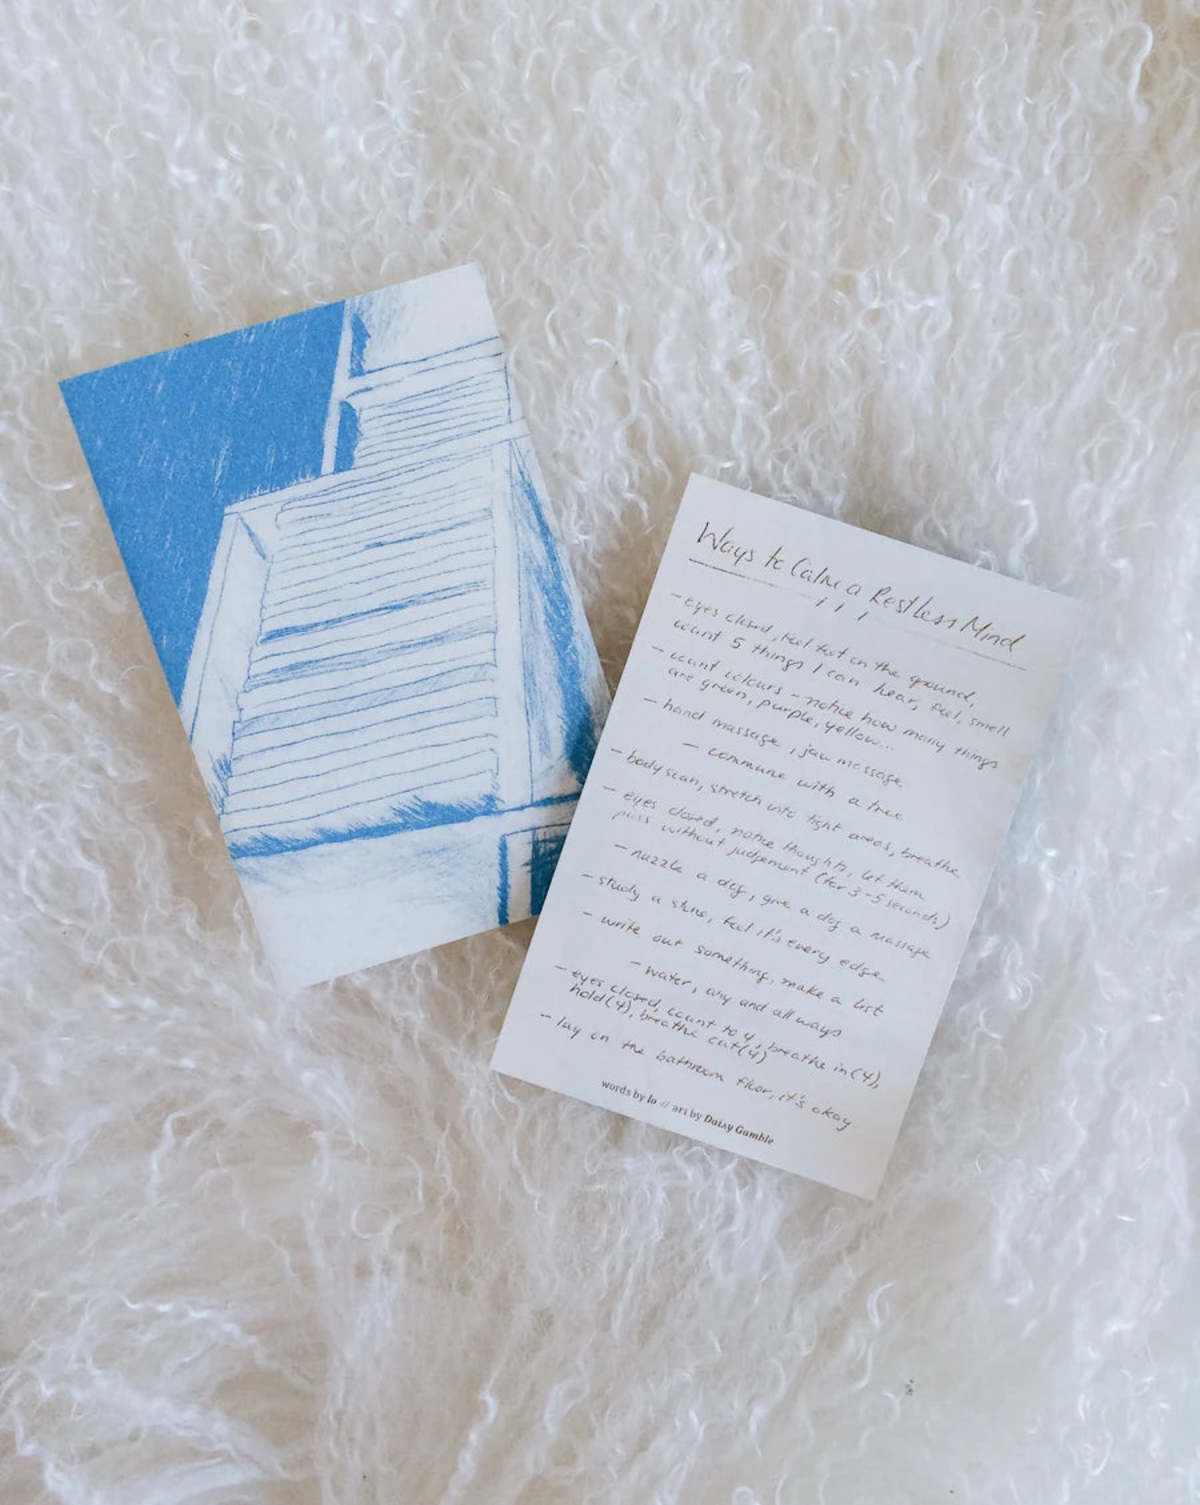 Ways to Calm a Restless Mind
- eyes closed, feel feet on the ground,
count 5 things I can hear, feel, smell
- count colours - notice how many things
are green, purple, yellow...
- hand massage, jaw massage
- commune with a tree
- body scan, stretch into tight areas, breathe
- eyes closed, notice thoughts, let them
pass without judgement (for 3-5 seconds)
- nuzzle a dog, give a dog a massage
- study a stone, feel it's every edge
- write out something, make a list
- water, any and all ways
- eyes closed, count to 4, breathe in (4),
hold (4), breathe out (4)
- lay on the bathroom floor, it's okay
words by lo // art by Daisy Gumble